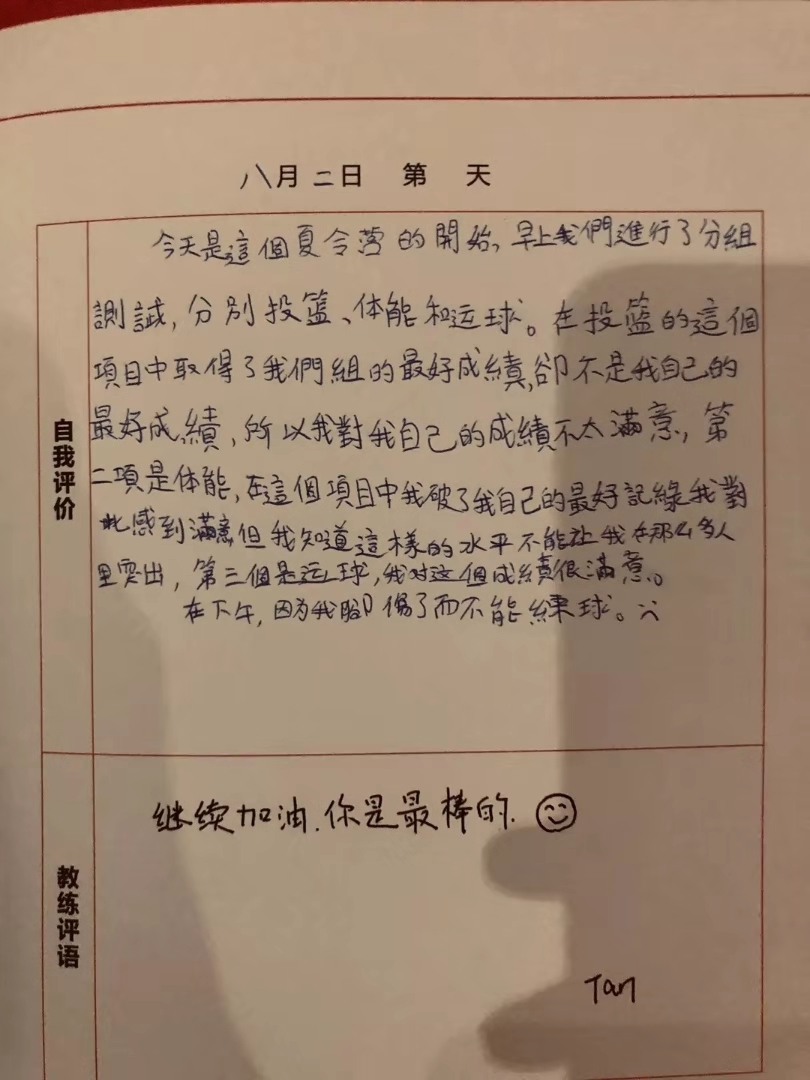 八月二日 第 天
自我评价
今天是這個夏令营的開始,早上我們進行了分組
測試,分別投篮、体能和运球。在投篮的這個
項目中取得了我們組的最好成績,卻不是我自己的
最好成績,所以我對我自己的成績不太滿意,第
二項是体能,在這個項目中我破了我自己的最好記錄我對
此感到滿意但我知道這樣的水平不能让我在那么多人
里突出,第三個是运球,我对这個成績很滿意。
在下午,因为我腳傷了而不能練球。
教练评语
继续加油.你是最棒的.
Tan